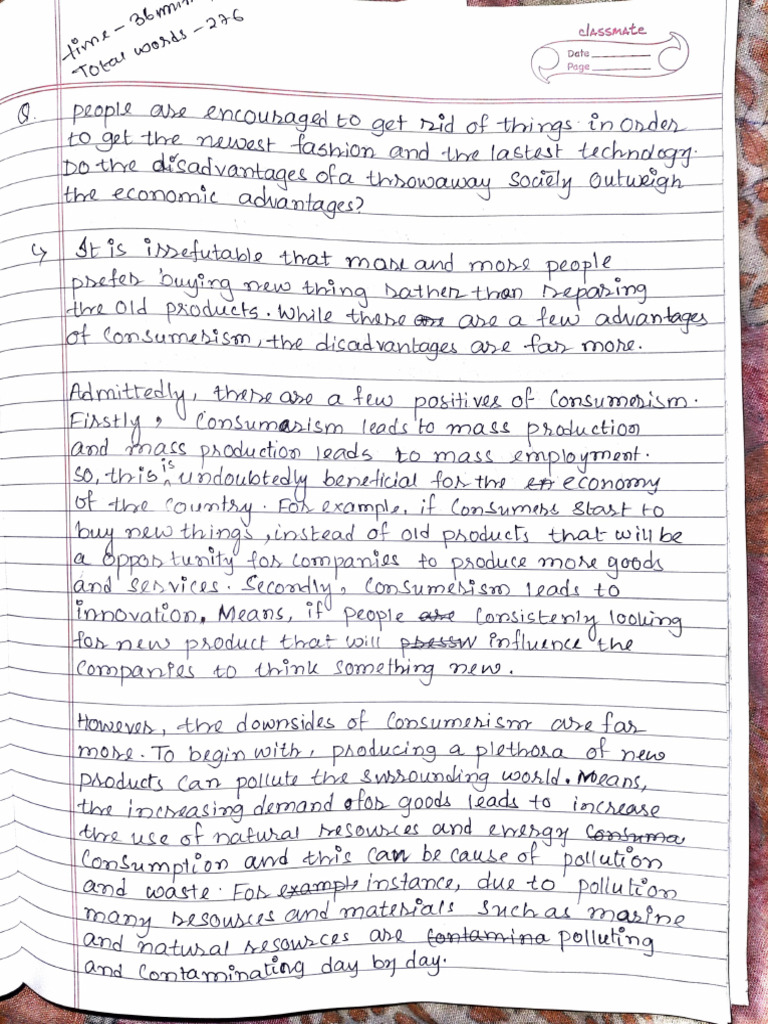 time - 36 min
Total words - 276
classmate
Date
Page
Q. people are encouraged to get rid of things in order
to get the newest fashion and the lastest technology.
Do the disadvantages of a throwaway society outweigh
the economic advantages?
↳ It is irrefutable that more and more people
prefer buying new thing rather than reparing
the old products. While there are a few advantages
of consumerism, the disadvantages are far more.
Admittedly, there are a few positives of consumerism.
Firstly, consumerism leads to mass production
and mass production leads to mass employment.
so, this is undoubtedly beneficial for the economy
of the country. For example, if consumers start to
buy new things, instead of old products that will be
a opportunity for companies to produce more goods
and services. Secondly, consumerism leads to
innovation. Means, if people consistenly looking
for new product that will influence the
companies to think something new.
However, the downsides of consumerism are far
more. To begin with, producing a plethora of new
products can pollute the surrounding world. Means,
the increasing demand for goods leads to increase
the use of natural resources and energy
consumption and this can be cause of pollution
and waste. For instance, due to pollution
many resources and materials such as marine
and natural resources are polluting
and contaminating day by day.